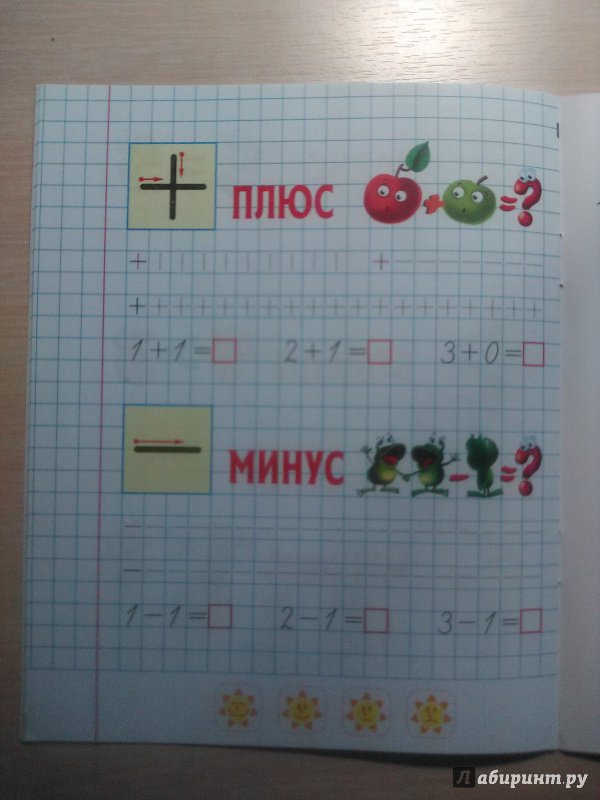 ПЛЮС + = ?
+ | | | | | | | | | + − − − − − − −
+ + + + + + + + + + + + + + + + + + +
1+1= 2+1= 3+0=
МИНУС − = ?
− − − − − − − − − − − − − − − − − − −
− − − − − − − − − − − − − − − − − − −
1−1= 2−1= 3−1=
Л абиринт.ру